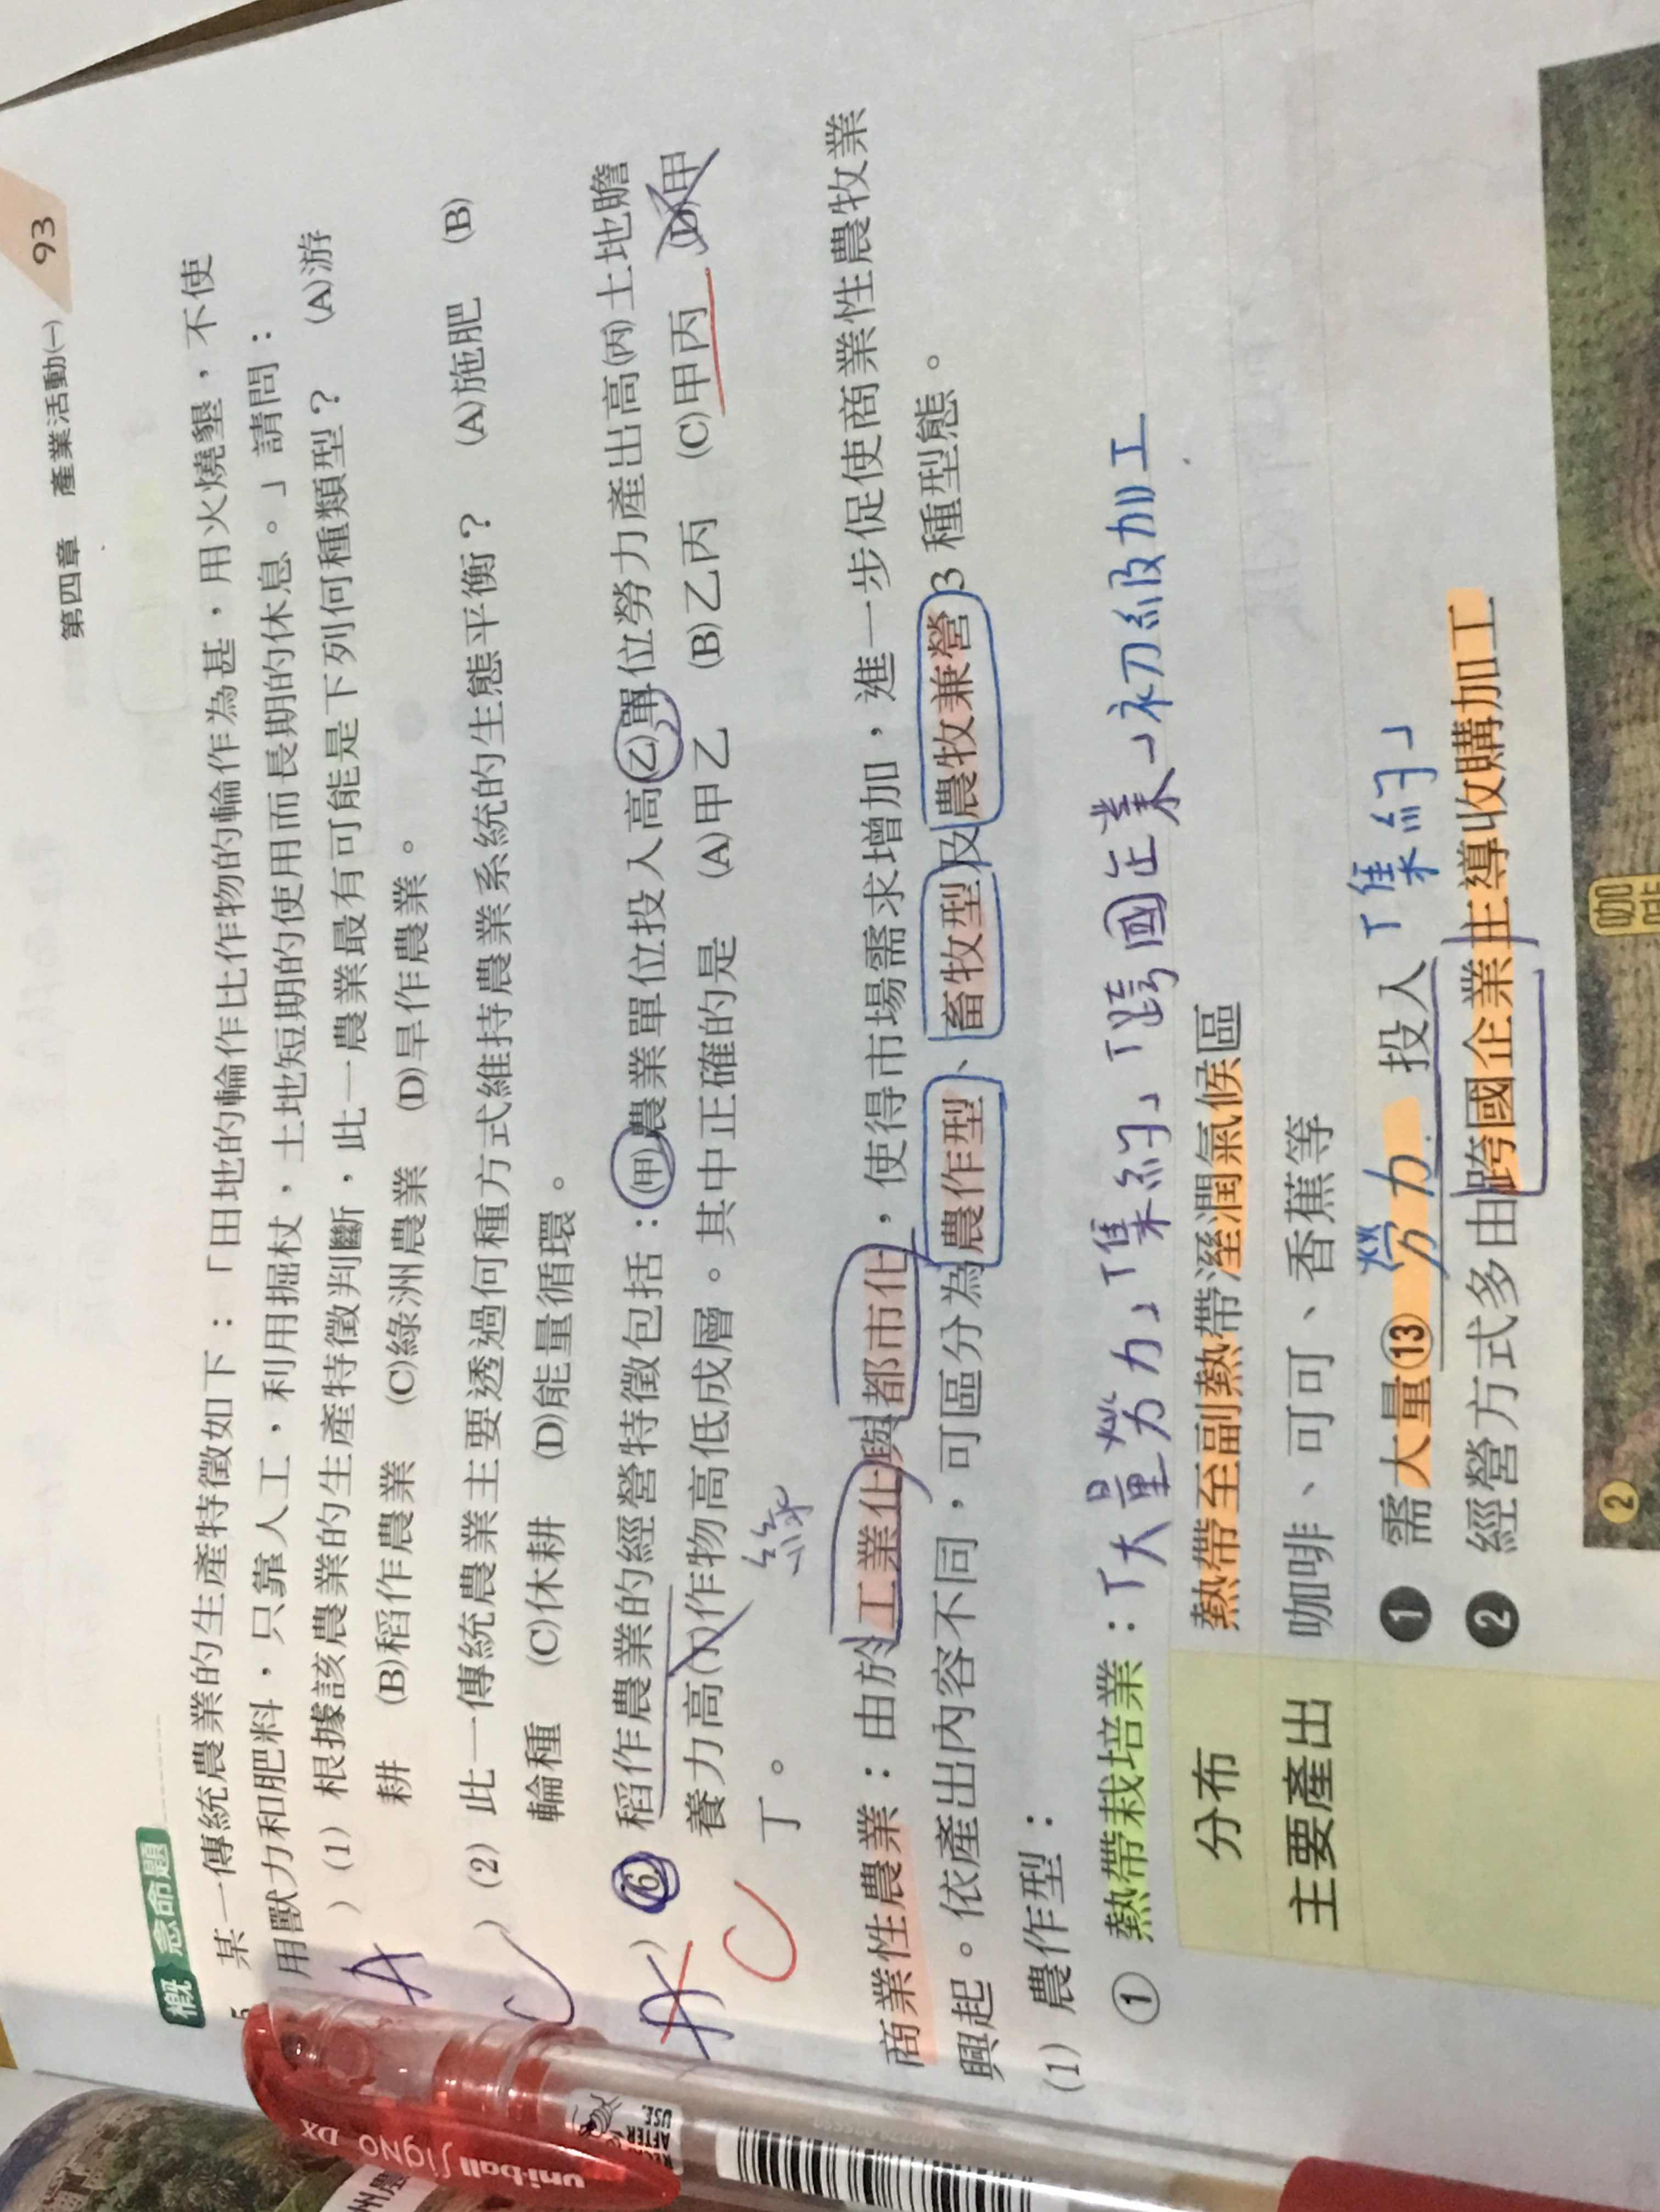 第四章 產業活動(一) 93
概念命題
某一傳統農業的生產特徵如下：「田地的輪作比作物的輪作為甚，用火燒墾，不使
用獸力和肥料，只靠人工，利用掘杖，土地短期的使用而長期的休息。」請問：
A ) (1) 根據該農業的生產特徵判斷，此一農業最有可能是下列何種類型？ (A)游
耕 (B)稻作農業 (C)綠洲農業 (D)旱作農業。
C ) (2) 此一傳統農業主要透過何種方式維持農業系統的生態平衡？ (A)施肥 (B)
輪種 (C)休耕 (D)能量循環。
A ) 6 稻作農業的經營特徵包括：(甲)農業單位投入高(乙)單位勞力產出高(丙)土地贍
C
養力高(丁)作物高低成層。其中正確的是 (A)甲乙 (B)乙丙 (C)甲丙 (D)甲
丁。
綠
商業性農業：由於工業化與都市化，使得市場需求增加，進一步促使商業性農牧業
興起。依產出內容不同，可區分為農作型、畜牧型及農牧兼營3種型態。
(1) 農作型：
① 熱帶栽培業：「大量勞力」「集約」「跨國企業」初級加工
分布 熱帶至副熱帶溼潤氣候區
主要產出 咖啡、可可、香蕉等
❶ 需大量⑬勞力投入「集約」
❷ 經營方式多由跨國企業主導收購加工
2
咖啡
uni-ball SigNO DX
AFTER
USE.